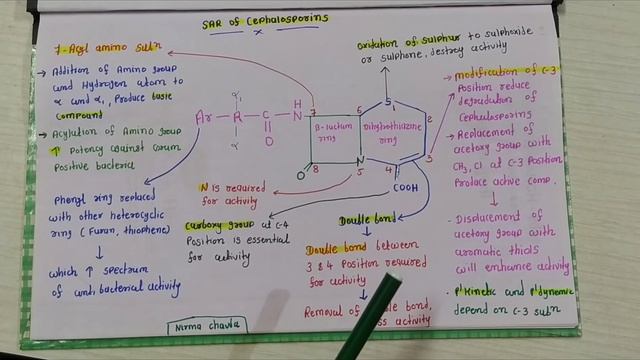 SAR of Cephalosporins
7-Acyl amino subn
→ Addition of Amino group
and Hydrogen atom to
α and α, Produce basic
compound
→ Acylation of Amino group
↑ Potency against Gram
Positive bacteria
Phenyl ring replaced
with other heterocyclic
ring (Furan, thiophene)
↓
which ↑ spectrum
of anti bacterial activity
oxidation of sulphur to sulphoxide
or sulphone, destroy activity
Ar - R - C - N
H
O
α1
α
7
6
S1
2
3
4
5
N
8
O
B-lactum
ring
Dihydrothiazine
ring
COOH
N is required
for activity
carboxy group at C-4
Position is essential
for activity
Double bond
↓
Double bond between
3 & 4 Position required
for activity
↓
Removal of bond,
activity
→ modification of C-3
Position reduce
degradation of
Cephalosporins
→ Replacement of
acetoxy group with
CH3, Cl at C-3 Position
Produce active comp.
↓
- Displacement of
acetoxy group with
aromatic thiols
will enhance activity
• P'kinetic and P'dynemic
depend on C-3 subn
Nirma chawla